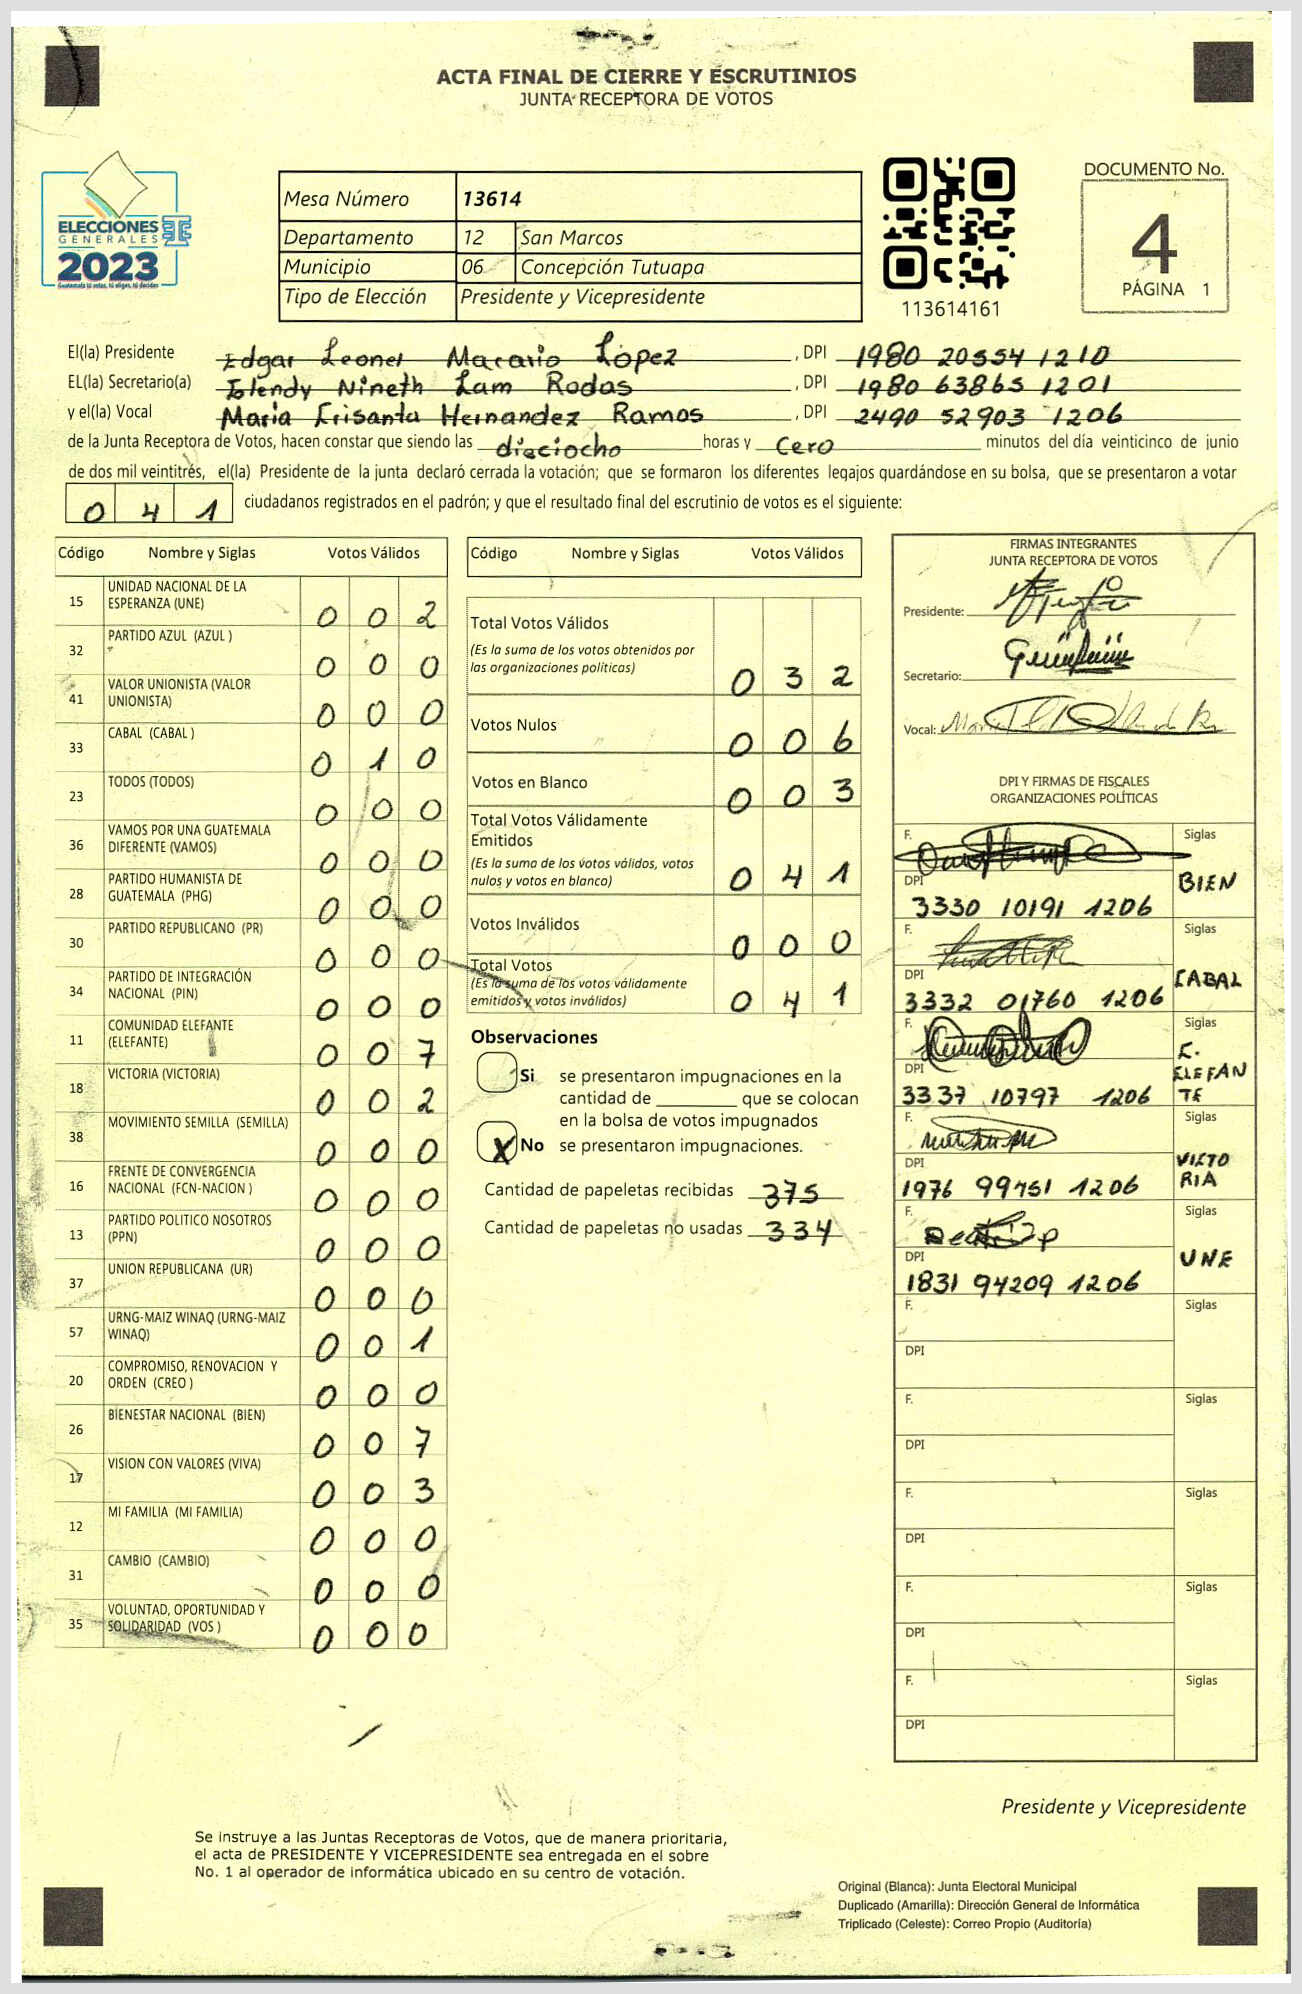 ACTA FINAL DE CIERRE Y ESCRUTINIOS
JUNTA RECEPTORA DE VOTOS
ELECCIONES
GENERALES
2023
Guatemala tú votas, tú eliges, tú decides
Mesa Número 13614
Departamento 12 San Marcos
Municipio 06 Concepción Tutuapa
Tipo de Elección Presidente y Vicepresidente
113614161
DOCUMENTO No.
4
PÁGINA 1
El(la) Presidente Edgar Leonel Macario López , DPI 1980 20554 1210
EL(la) Secretario(a) Nineth Lam Rodas , DPI 1980 63865 1201
y el(la) Vocal Maria Crisanta Hernandez Ramos , DPI 2490 52903 1206
de la Junta Receptora de Votos, hacen constar que siendo las dieciocho horas y cero minutos del día veinticinco de junio
de dos mil veintitrés, el(la) Presidente de la junta declaró cerrada la votación; que se formaron los diferentes legajos guardándose en su bolsa, que se presentaron a votar
0 4 1 ciudadanos registrados en el padrón; y que el resultado final del escrutinio de votos es el siguiente:
Código Nombre y Siglas Votos Válidos
15 UNIDAD NACIONAL DE LA ESPERANZA (UNE) 0 0 2
32 PARTIDO AZUL (AZUL ) 0 0 0
41 VALOR UNIONISTA (VALOR UNIONISTA) 0 0 0
33 CABAL (CABAL ) 0 1 0
23 TODOS (TODOS) 0 0 0
36 VAMOS POR UNA GUATEMALA DIFERENTE (VAMOS) 0 0 0
28 PARTIDO HUMANISTA DE GUATEMALA (PHG) 0 0 0
30 PARTIDO REPUBLICANO (PR) 0 0 0
34 PARTIDO DE INTEGRACIÓN NACIONAL (PIN) 0 0 0
11 COMUNIDAD ELEFANTE (ELEFANTE) 0 0 7
18 VICTORIA (VICTORIA) 0 0 2
38 MOVIMIENTO SEMILLA (SEMILLA) 0 0 0
16 FRENTE DE CONVERGENCIA NACIONAL (FCN-NACION ) 0 0 0
13 PARTIDO POLITICO NOSOTROS (PPN) 0 0 0
37 UNION REPUBLICANA (UR) 0 0 0
57 URNG-MAIZ WINAQ (URNG-MAIZ WINAQ) 0 0 1
20 COMPROMISO, RENOVACION Y ORDEN (CREO ) 0 0 0
26 BIENESTAR NACIONAL (BIEN) 0 0 7
17 VISION CON VALORES (VIVA) 0 0 3
12 MI FAMILIA (MI FAMILIA) 0 0 0
31 CAMBIO (CAMBIO) 0 0 0
35 VOLUNTAD, OPORTUNIDAD Y SOLIDARIDAD (VOS ) 0 0 0
Código Nombre y Siglas Votos Válidos
Total Votos Válidos 0 3 2
(Es la suma de los votos obtenidos por
las organizaciones políticas)
Votos Nulos 0 0 6
Votos en Blanco 0 0 3
Total Votos Válidamente
Emitidos 0 4 1
(Es la suma de los votos válidos, votos
nulos y votos en blanco)
Votos Inválidos 0 0 0
Total Votos 0 4 1
(Es la suma de los votos válidamente
emitidos y votos inválidos)
Observaciones
Si se presentaron impugnaciones en la
cantidad de ________ que se colocan
en la bolsa de votos impugnados
X No se presentaron impugnaciones.
Cantidad de papeletas recibidas 375
Cantidad de papeletas no usadas 334
FIRMAS INTEGRANTES
JUNTA RECEPTORA DE VOTOS
Presidente:
Secretario:
Vocal:
DPI Y FIRMAS DE FISCALES
ORGANIZACIONES POLÍTICAS
F. Siglas
DPI BIEN
3330 10191 1206
F. Siglas
DPI CABAL
3332 01760 1206
F. Siglas
DPI E. ELEFANTE
3337 10797 1206
F. Siglas
DPI VICTORIA
1976 99451 1206
F. Siglas
DPI UNE
1831 94209 1206
F. Siglas
DPI
F. Siglas
DPI
F. Siglas
DPI
F. Siglas
DPI
F. Siglas
DPI
Presidente y Vicepresidente
Se instruye a las Juntas Receptoras de Votos, que de manera prioritaria,
el acta de PRESIDENTE Y VICEPRESIDENTE sea entregada en el sobre
No. 1 al operador de informática ubicado en su centro de votación.
Original (Blanca): Junta Electoral Municipal
Duplicado (Amarilla): Dirección General de Informática
Triplicado (Celeste): Correo Propio (Auditoría)